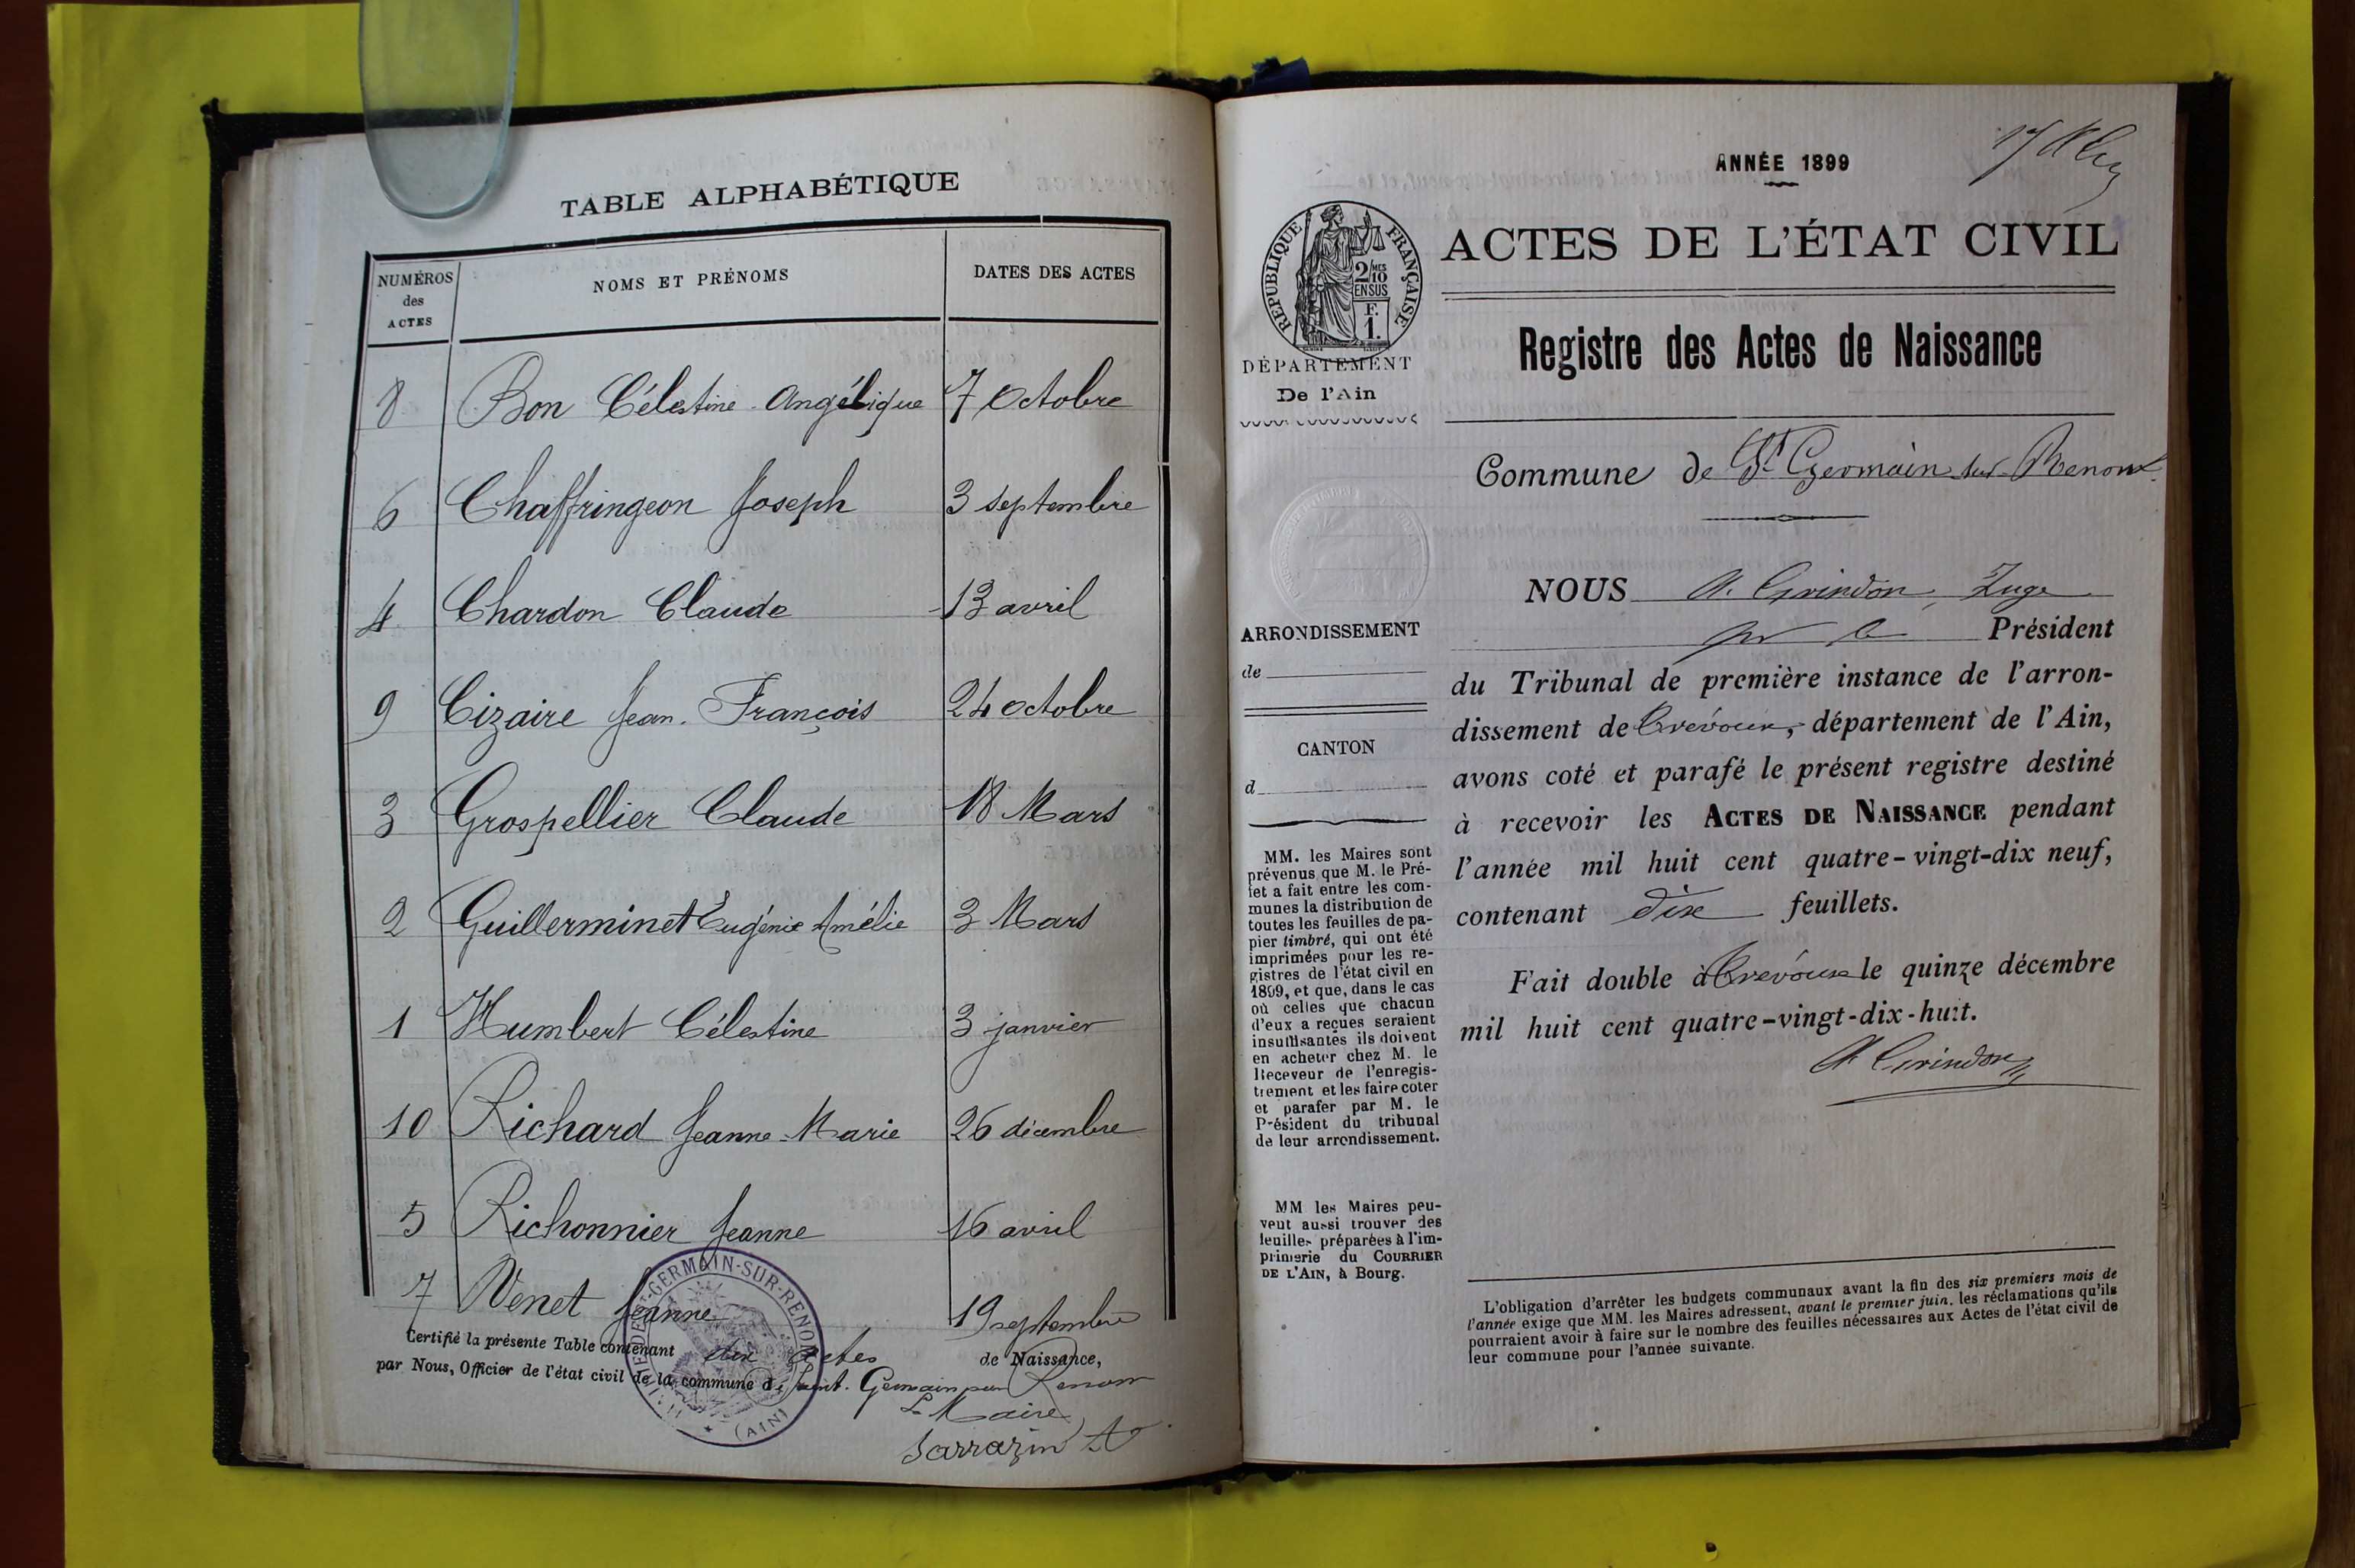 TABLE ALPHABÉTIQUE
NUMÉROS des ACTES
NOMS ET PRÉNOMS
DATES DES ACTES
8 Bon Célestine Angélique 7 Octobre
6 Chaffringeon Joseph 3 septembre
4 Chardon Claude 13 avril
9 Cizaire Jean-François 24 octobre
3 Grospellier Claude 18 Mars
2 Guillerminet Eugénie Amélie 3 Mars
1 Humbert Célestine 3 janvier
10 Richard Jeanne-Marie 26 décembre
5 Richonnier Jeanne 16 avril
7 Venet Jeanne 19 septembre
Certifié la présente Table contenant dix actes de Naissance,
par Nous, Officier de l'état civil de la commune de Saint-Germain sur Renom
Le Maire
Sarrazin
GERMAIN-SUR-RENON
(AIN)
ANNÉE 1899
RÉPUBLIQUE FRANÇAISE
2/10 MES
EN SUS
F.
1.
ACTES DE L'ÉTAT CIVIL
DÉPARTEMENT
De l'Ain
Registre des Actes de Naissance
Commune de St Germain sur Renom
ARRONDISSEMENT
de
CANTON
d
MM. les Maires sont
prévenus que M. le Pré-
fet a fait entre les com-
munes la distribution de
toutes les feuilles de pa-
pier timbré, qui ont été
imprimées pour les re-
gistres de l'état civil en
1899, et que, dans le cas
où celles que chacun
d'eux a reçues seraient
insuffisantes ils doivent
en acheter chez M. le
Receveur de l'enregis-
trement et les faire coter
et parafer par M. le
Président du tribunal
de leur arrondissement.
MM les Maires peu-
vent aussi trouver des
feuilles préparées à l'im-
primerie du COURRIER
DE L'AIN, à Bourg.
NOUS A. Grindon, Juge
pr le Président
du Tribunal de première instance de l'arron-
dissement de Trévoux, département de l'Ain,
avons coté et parafé le présent registre destiné
à recevoir les ACTES DE NAISSANCE pendant
l'année mil huit cent quatre-vingt-dix neuf,
contenant dix feuillets.
Fait double à Trévoux le quinze décembre
mil huit cent quatre-vingt-dix-huit.
A Grindon
L'obligation d'arrêter les budgets communaux avant la fin des six premiers mois de
l'année exige que MM. les Maires adressent, avant le premier juin, les réclamations qu'ils
pourraient avoir à faire sur le nombre des feuilles nécessaires aux Actes de l'état civil de
leur commune pour l'année suivante.